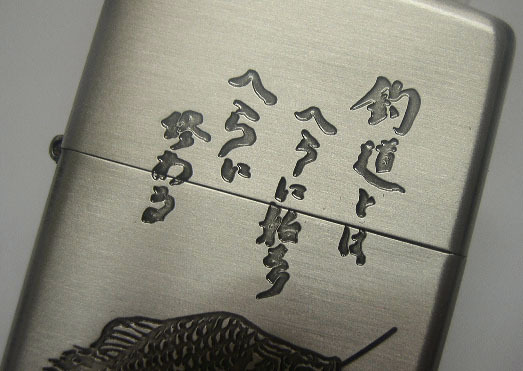 釣道とは
へらに始まり
へらに
終わる